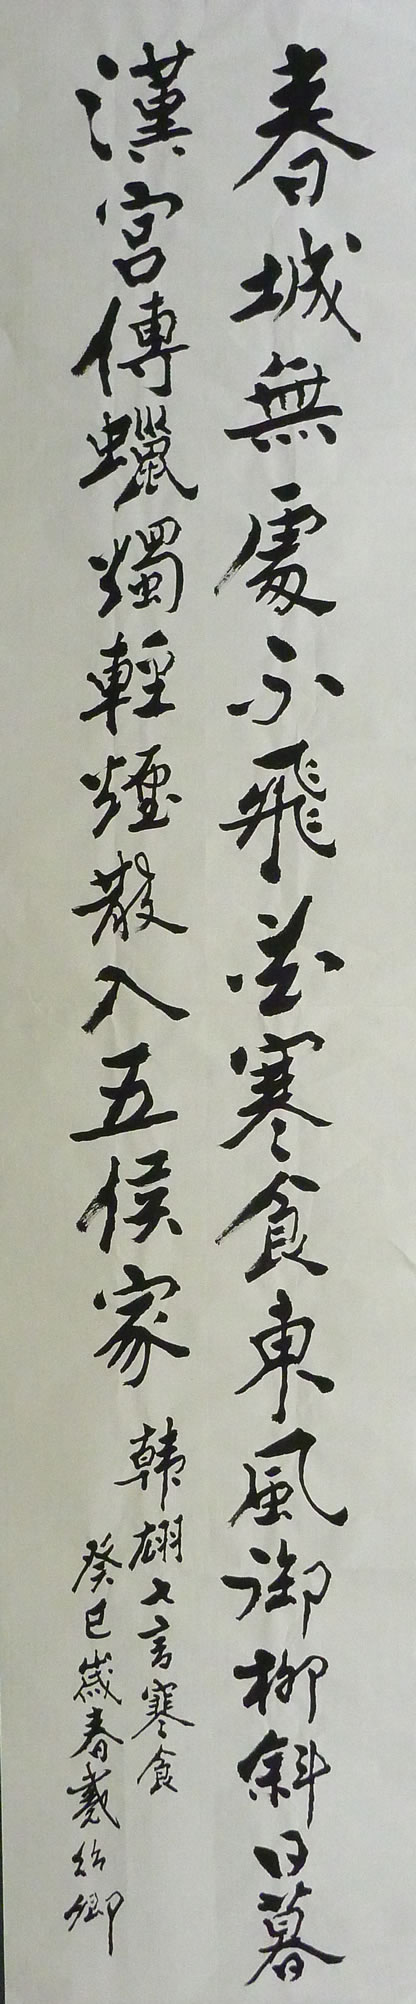 春城無處不飛花寒食東風御柳斜日暮
漢宮傳蠟燭輕煙散入五侯家
韓翃七言寒食
癸巳歲春戴紹卿